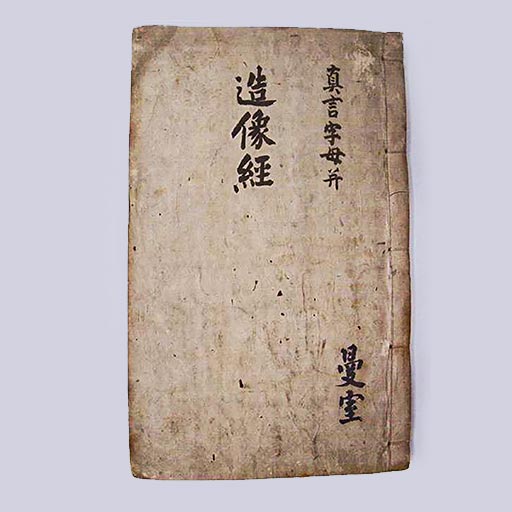 真言字母并
造像經
曼室